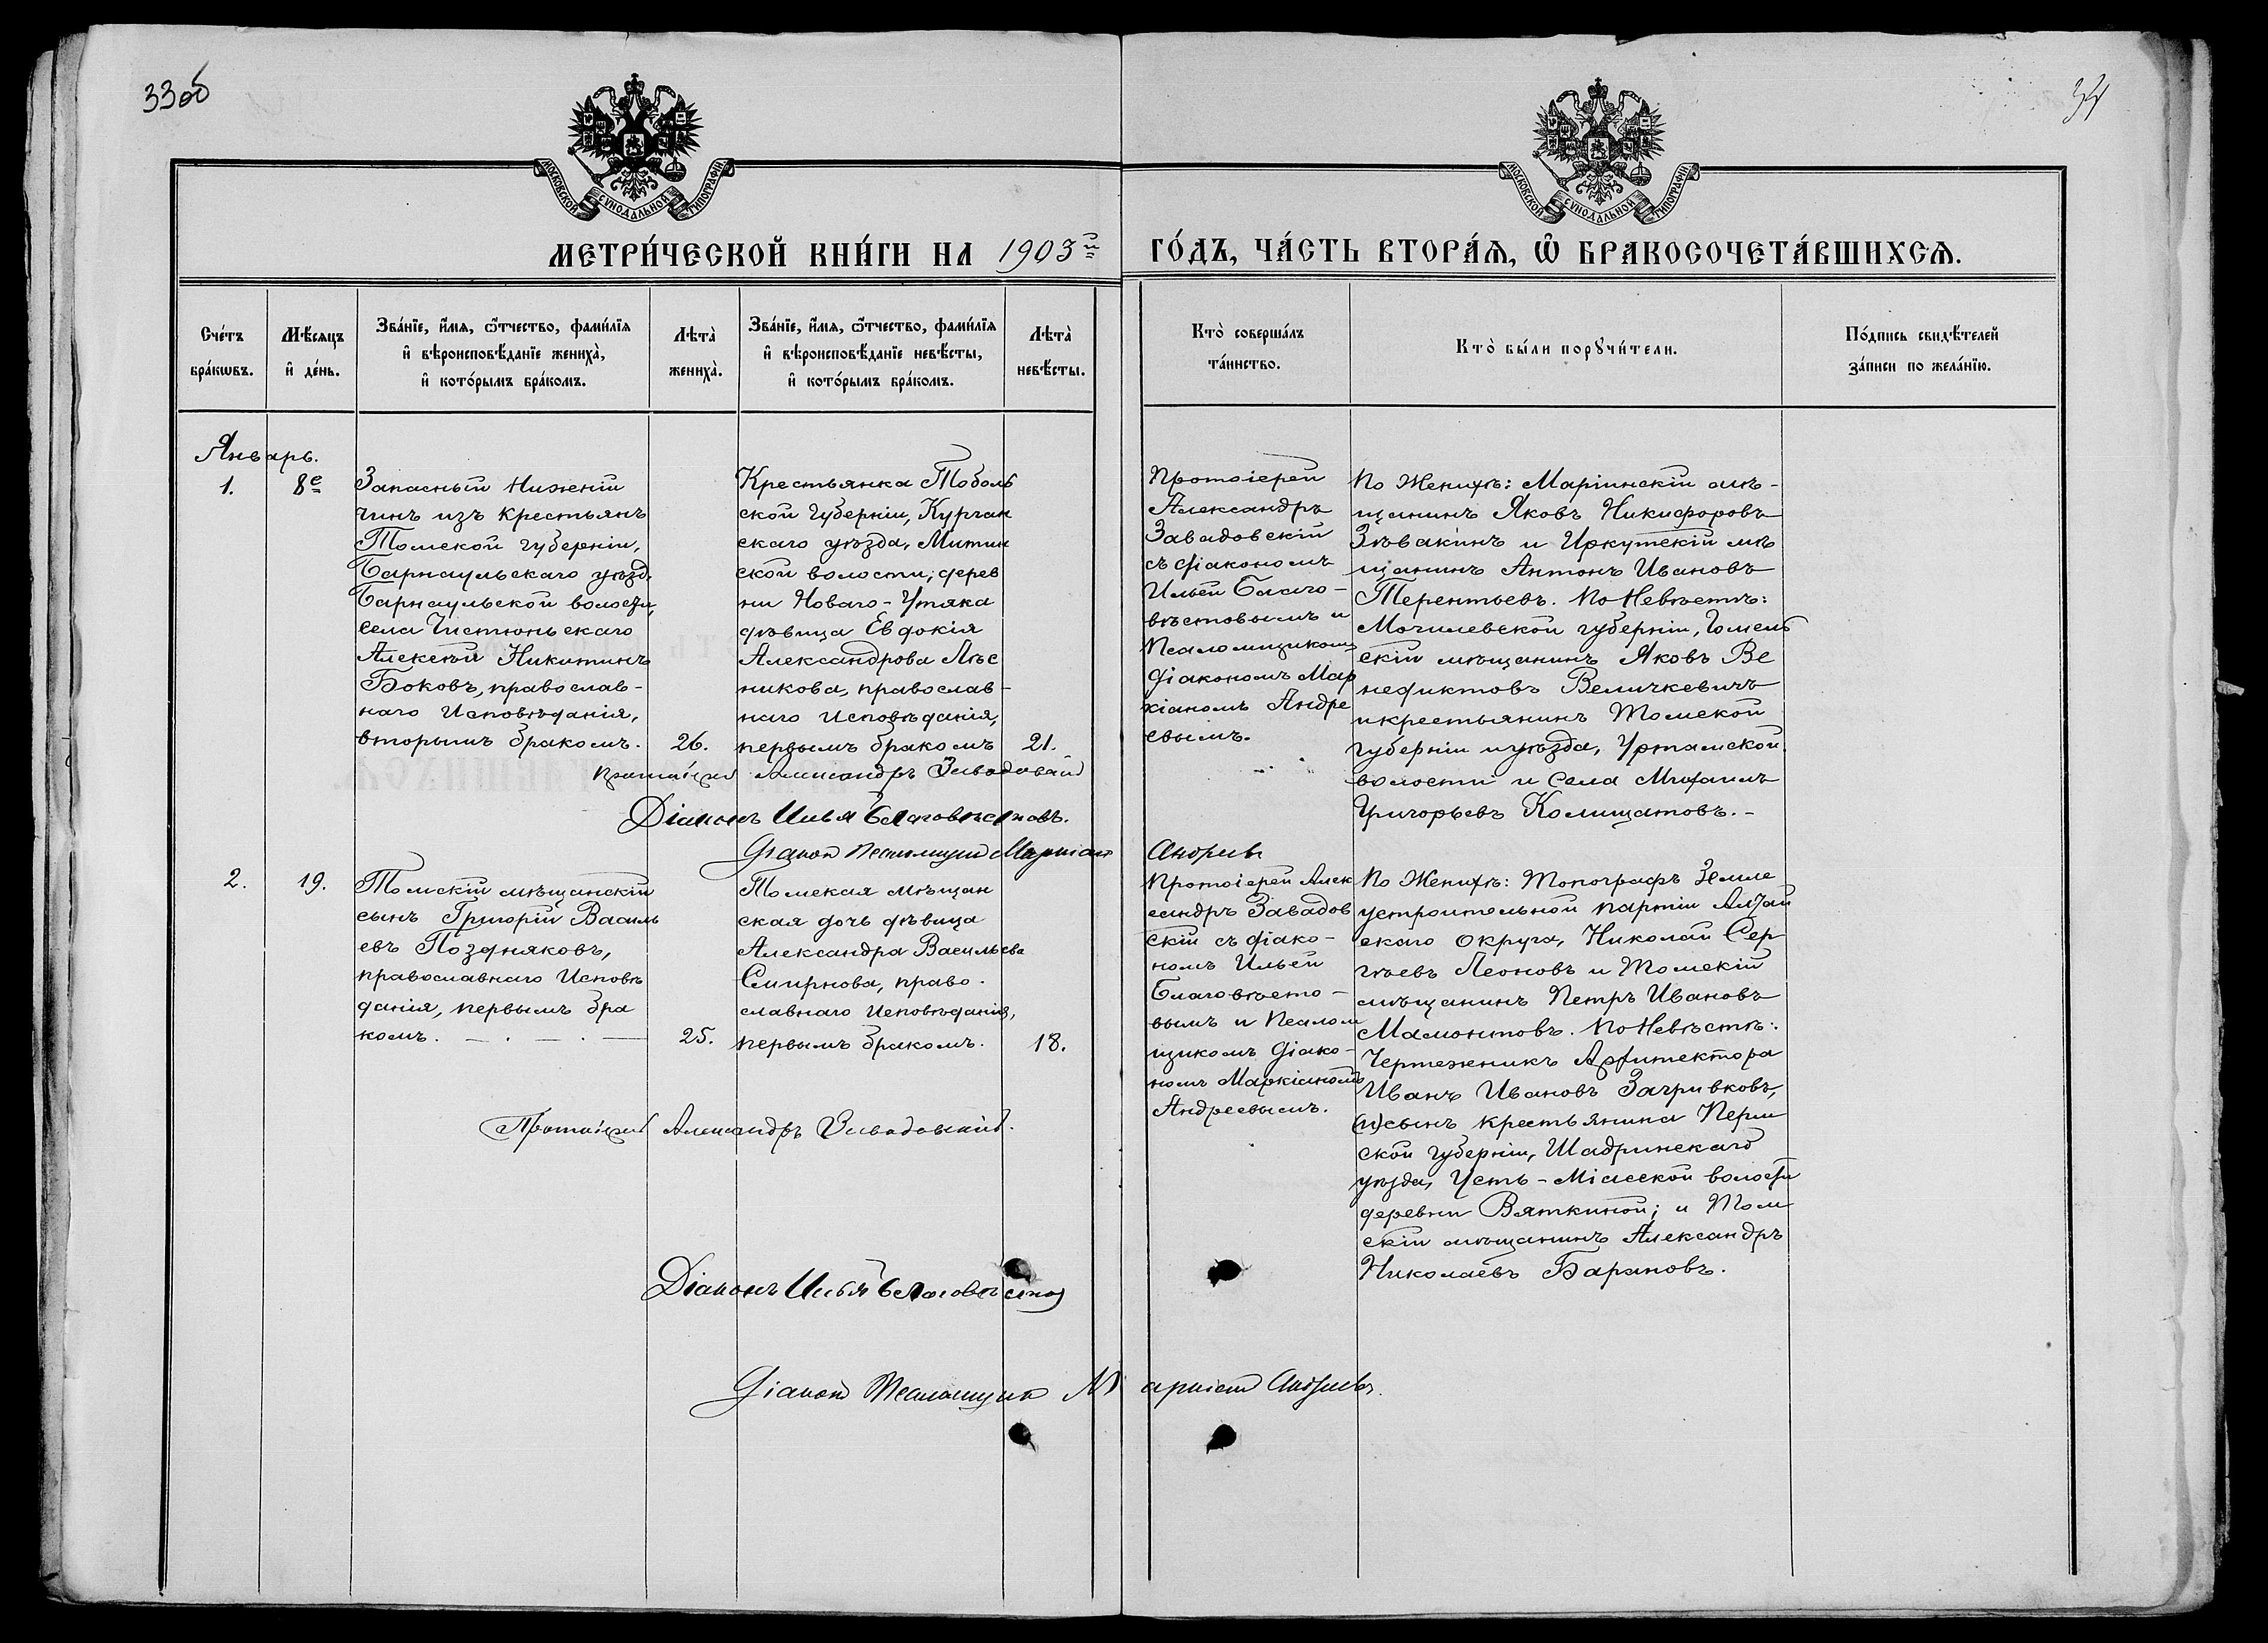 33об
34
МОСКОВСКОЙ СѴНОДАЛЬНОЙ ТИПОГРАФІИ
МОСКОВСКОЙ СѴНОДАЛЬНОЙ ТИПОГРАФІИ
МЕТРИ́ЧЕСКОЙ КНИ́ГИ НА 1903й ГО́ДЪ, ЧА́СТЬ ВТОРА́Ѧ, Ѽ БРАКОСОЧЕТА́ВШИХСѦ.
Сче́тъ
бра́кѡвъ.
Мѣ́сяцъ
и҆ де́нь.
Зва́нїе, и҆́мѧ, ѻ҆́тчество, фамилїѧ
и҆ вѣроисповѣ́данїе жениха̀,
и҆ кото́рымъ бра́комъ.
Лѣта̀
жениха̀.
Зва́нїе, и҆́мѧ, ѻ҆́тчество, фамилїѧ
и҆ вѣроисповѣ́данїе невѣ́сты,
и҆ кото́рымъ бра́комъ.
Лѣта̀
невѣ́сты.
Кто̀ соверша́лъ
та́инство.
Кто̀ бы́ли порꙋчи́тели.
По́дпись свидѣ́телей
за́писи по жела́нїю.
Январь.
1.
8е
Запасный нижній
чинъ изъ крестьянъ
Томской губерніи,
Барнаульскаго уѣзд.
Барнаульской волости,
села Чистюньскаго
Алексѣй Никитинъ
Боковъ, православ-
наго исповѣданія,
вторымъ бракомъ.
26.
Крестьянка Тоболь
ской губерніи, Курган
скаго уѣзда, Митин
ской волости, дерев
ни Новаго-Утяка
дѣвица Евдокія
Александрова Лѣс
никова, православ-
наго исповѣданія,
первымъ бракомъ
21.
Протоіерей
Александръ
Завадовскій
съ діакономъ
Ильей Благо-
вѣстовымъ и
Псаломщикомъ
діакономъ Мар
кіаномъ Андре
евымъ.
По Женихѣ: Маріинскій мѣ-
щанинъ Яковъ Никифоровъ
Зѣвакинъ и Иркутскій мѣ
щанинъ Антонъ Ивановъ
Терентьевъ. По Невѣстѣ:
Могилевской губерніи, Гомель
скій мѣщанинъ Яковъ Ве
недиктовъ Величкевичъ
и крестьянинъ Томской
губерніи и уѣзда, Уртамской
волости и села Михаилъ
Григорьевъ Колищатовъ.-
Протоіерей Александръ Завадовскій
Діаконъ Илья Благовѣстовъ.
Діакон Псаломщик Маркіан Андреевъ
2.
19.
Томскій мѣщанскій
сынъ Григорій Василь
евъ Поздняковъ,
православнаго исповѣ
данія, первымъ бра
комъ. — . — . —
25.
Томская мѣщан
ская дочь дѣвица
Александра Васильева
Смирнова, право-
славнаго исповѣданія,
первымъ бракомъ.
18.
Протоіерей Алек
сандръ Завадов
скій съ діако-
номъ Ильей
Благовѣсто-
вымъ и Псалом
щикомъ діако-
номъ Маркіаномъ
Андреевымъ.
По Женихѣ: Топографъ Земле
устроительной партіи Алтай
скаго округа, Николай Сер
гѣевъ Леоновъ и Томскій
мѣщанинъ Петръ Ивановъ
Мамонтовъ. По Невѣстѣ:
Чертежникъ Архитектора
Иванъ Ивановъ Загривковъ,
(и) сынъ крестьянина Перм
ской губерніи, Шадринскаго
уѣзда, Усть-Міасской волости
деревни Вяткиной; и Том
скій мѣщанинъ Александръ
Николаевъ Барановъ.
Протоіерей Александръ Завадовскій.
Діаконъ Илья Благовѣстов
Діакон Псаломщик Маркіан Андреевъ.